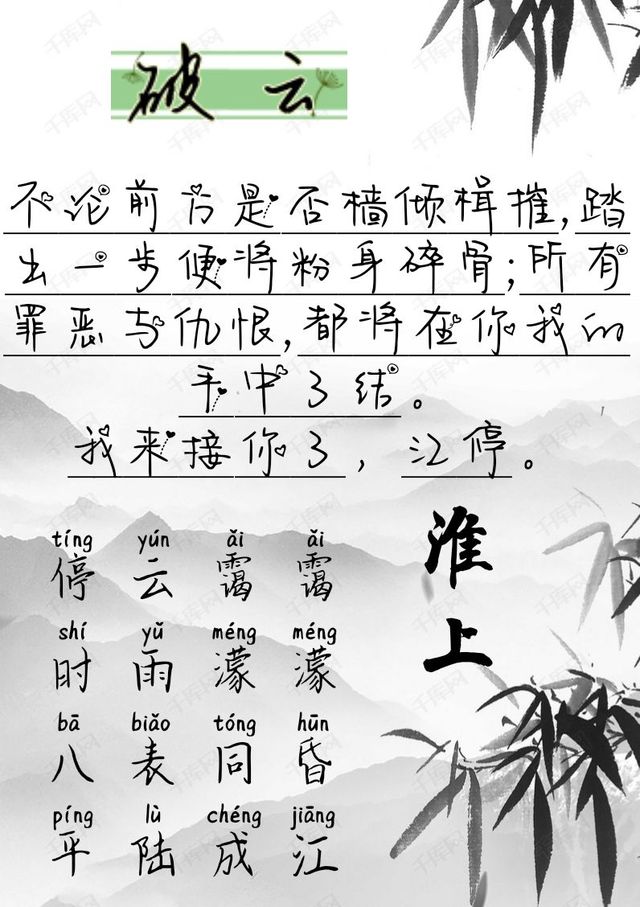 破云
不论前方是否樯倾楫摧,踏
出一步便将粉身碎骨;所有
罪恶与仇恨,都将在你我的
手中了结。
我来接你了,江停。
tíng yún ǎi ǎi
停云霭霭
shí yǔ méng méng
时雨濛濛
bā biǎo tóng hūn
八表同昏
píng lù chéng jiāng
平陆成江
淮上
千库网